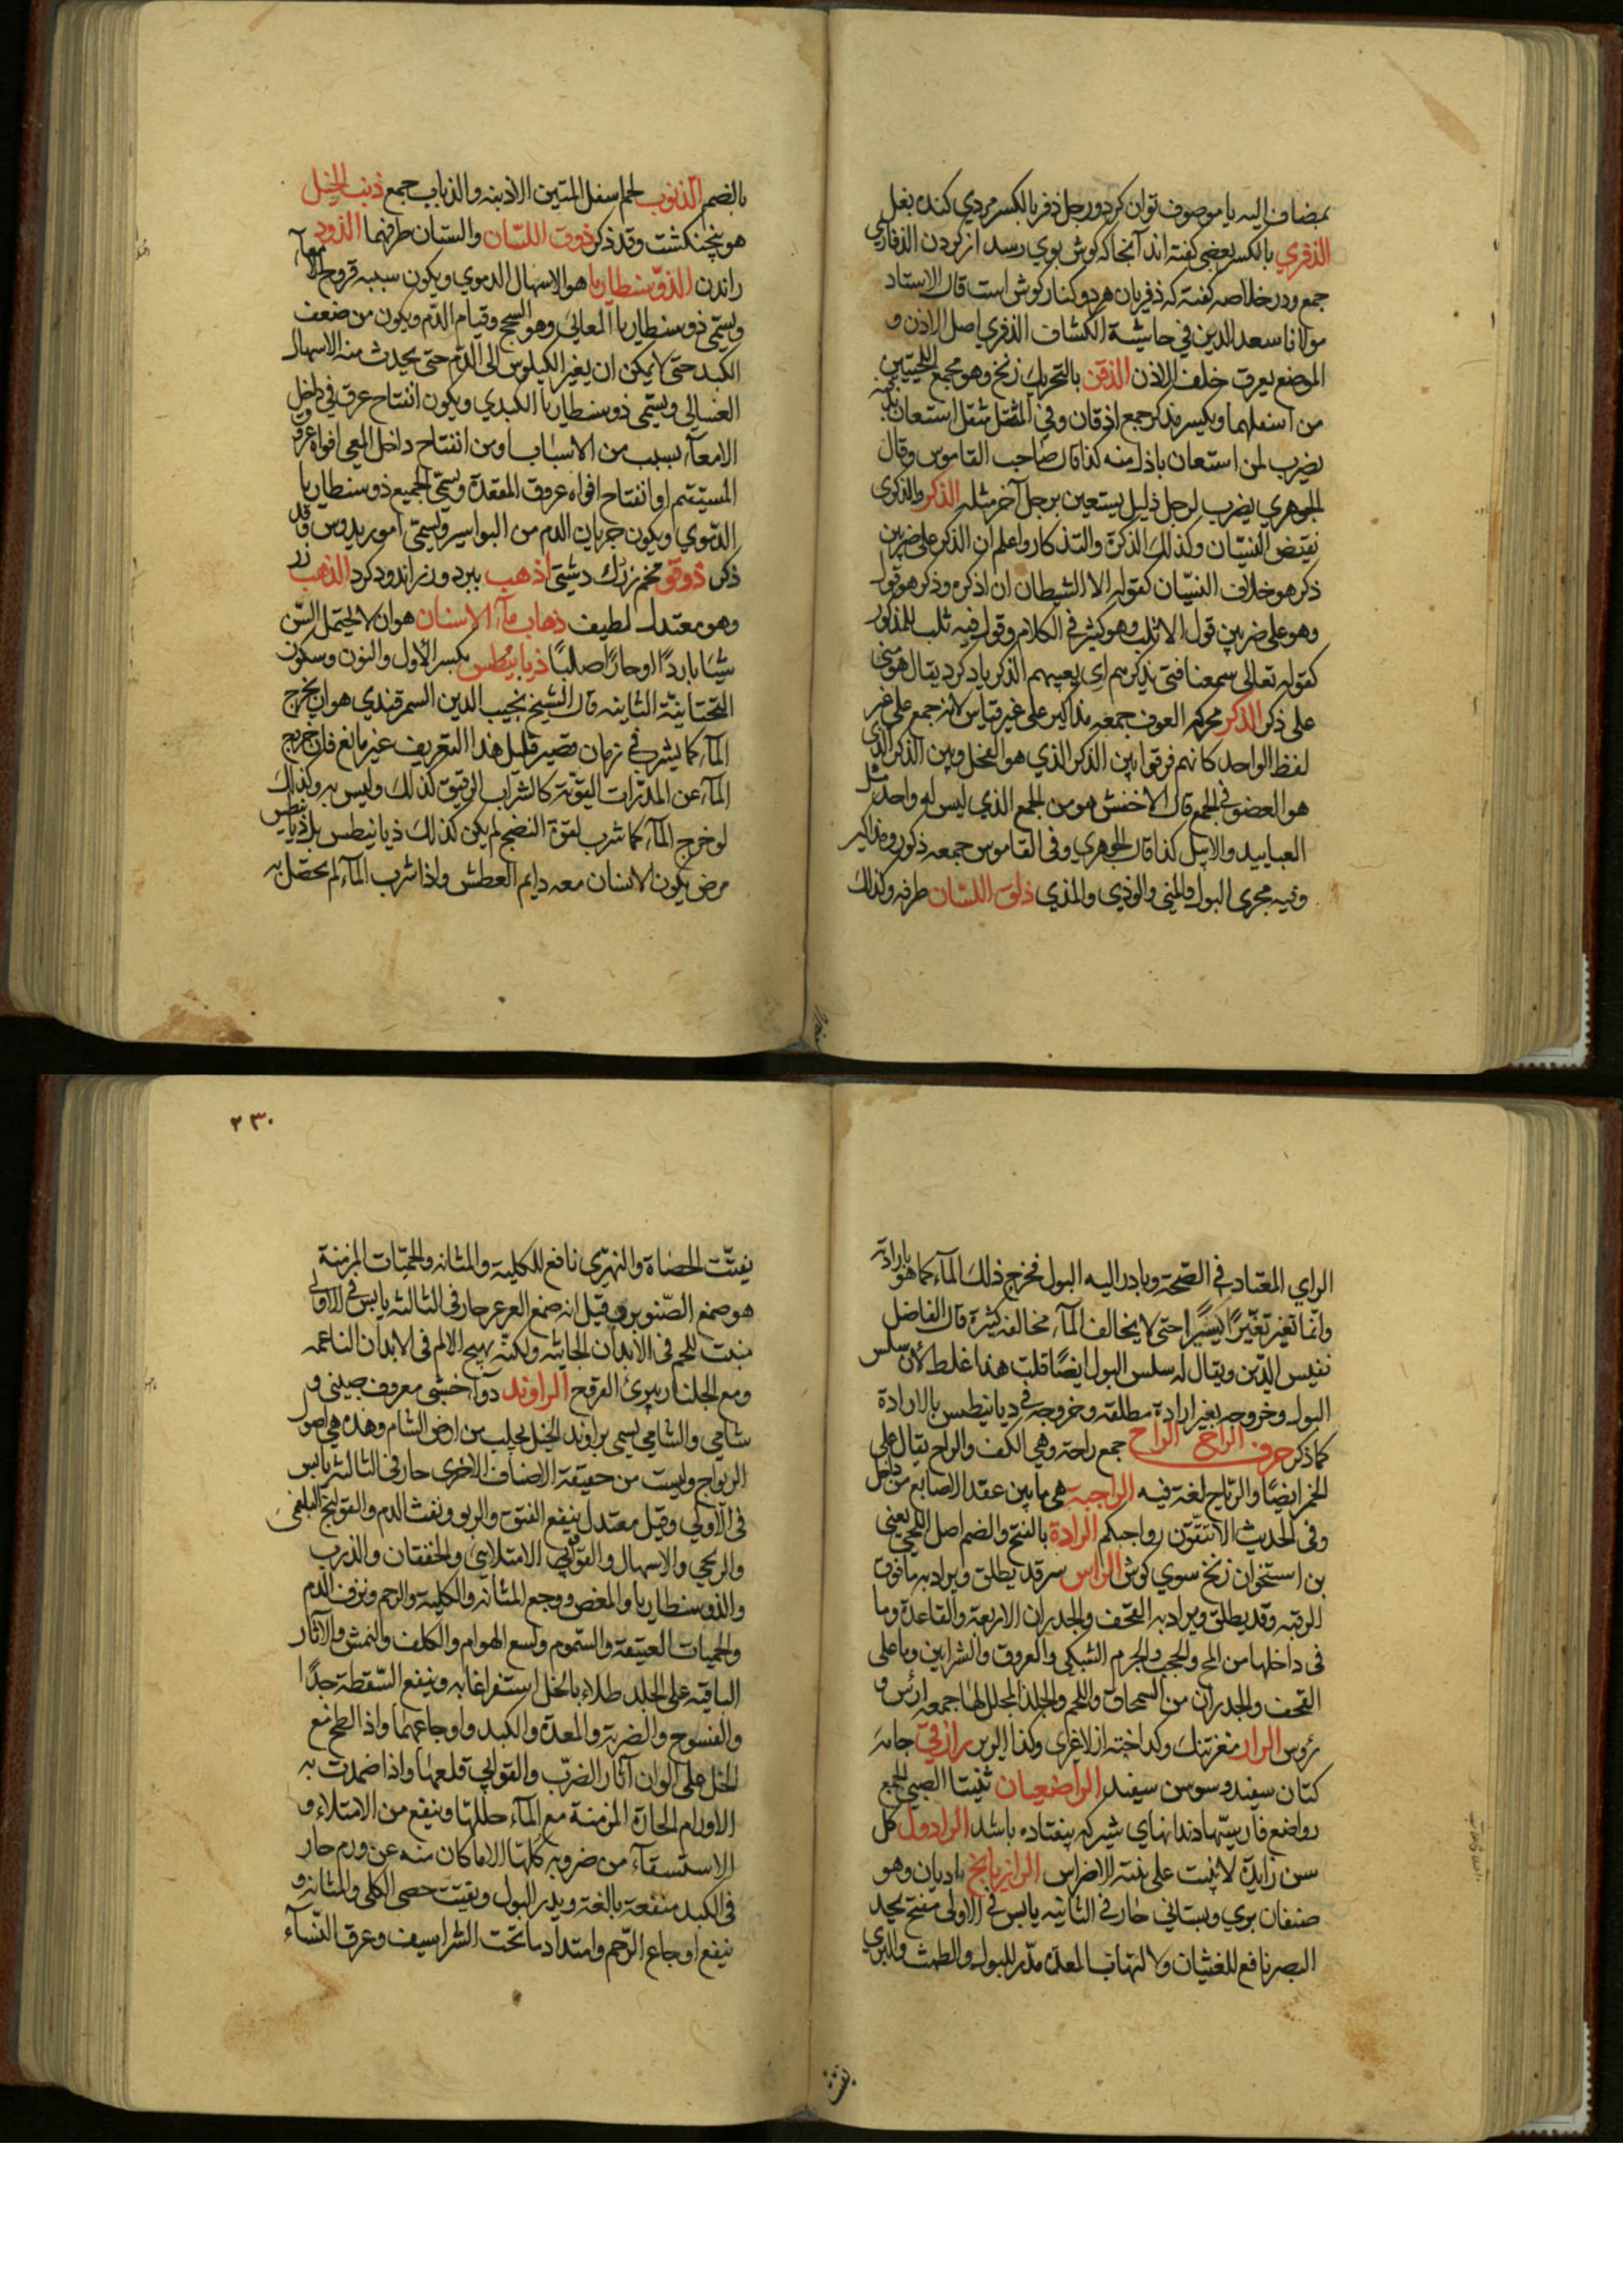 بمضاف اليه يا موصوف توان كرد ورجل ذفر بالكسر مردي كنده بغل
الذفري بالكسر بعضي كفته اند آنجا كه كوش بوي رسد از كردن الذفاري
جمع ودر خلاصه كفته كه ذفريان هر دو كنار كوش است قال الاستاد
مولانا سعد الدين في حاشية الكشاف الذفري اصل الاذن و
الموضع يعرق خلف الاذن الذقن بالتحريك زنخ وهو مجمع اللحيين
من اسفلهما ويكسر مذكر جمع اذقان وفي المثل مثقل استعان بذقنه
يضرب لمن استعان باذل منه كذا قال صاحب القاموس وقال
الجوهري يضرب لرجل ذليل يستعين برجل آخر مثله الذكر والذكرى
نقيض النسيان وكذلك الذكرة والتذكار واعلم ان الذكر على ضربين
ذكر هو خلاف النسيان كقوله الا الشيطان ان اذكره وذكر هو قول
وهو على ضربين قول لا ثلب وهو كثير في الكلام وقول فيه ثلب للمذكور
كقوله تعالى سمعنا فتى يذكرهم اي يعيبهم الذكر ياد كرد يقال هو مني
على ذكر الذكر محركه العوف جمعه مذاكير على غير قياس لانه جمع على غير
لفظ الواحد كانهم فرقوا بين الذكر الذي هو الفحل وبين الذكر الذي
هو العضو في الجمع قال الاخفش هو من الجمع الذي ليس له واحد مثل
العبابيد والابيل كذا قال الجوهري وفي القاموس جمعه ذكور ومذاكير
وفيه مجرى البول والمني والوذي والمذي ذلق اللسان طرفه وكذلك
بالضم الذنوب لحم اسفل المتين الاذبنه والذباب جمع ذنب الخيل
هو پنجنكشت وقد ذكر ذوق اللسان واللستان طرفهما الذود
راندن الذوسنطاريا هو الاسهال الدموي ويكون سببه قروح الامعاء
ويسمى ذوسنطاريا المعائي وهو السحج وقيام الدم ويكون من ضعف
الكبد حتى لا يمكن ان يغير الكيلوس الى الدم حتى يحدث منه الاسهال
الغسالي ويسمى ذوسنطاريا الكبدي ويكون انفتاح عرق في داخل
الامعاء بسبب من الاسباب او من انفتاح داخل المعي افواه عروق
المستقيم او انفتاح افواه عروق المقعدة ويسمى الجميع ذوسنطاريا
الدموي ويكون جريان الدم من البواسير ويسمى امور يدوس وقد
ذكر ذوقو تخم زردك دشتي اذهب ببرد وزر اندود كرد الذهب زر
وهو معتدل لطيف ذهاب ماء الاسنان هو ان لا يحتمل السن
شيئا باردا او حارا صلبا ذيابيطس بكسر الاول والنون وسكون
التحتانية الثانية قال الشيخ نجيب الدين السمرقندي هو ان يخرج
الماء كما يشرب في زمان قصير قليل هذا التعريف غير مانع فان خروج
الماء عن المدرات القوية كالشراب الرقيق كذلك وليس به وكذلك
لو خرج الماء كما شرب لقوة النضج لم يكن كذلك ذيانيطس بل ذيابيطس
مرض يكون الانسان معه دايم العطش واذا شرب الماء لم يحصل به
الراي المعتاد في الصحة وبادر اليه البول فخرج ذلك الماء كما هو بارادته
وانما تغير تغيرا يسيرا حتى لا يخالف الماء مخالفة كثيرة قال الفاضل
نفيس الدين ويقال له سلس البول ايضا قلت هذا غلط لان سلس
البول وخروجه بغير ارادة مطلقه وخروجه في ديانيطس بالارادة
كما ذكر حرف الراء الراح جمع راحة وهي الكف والراح يقال على
الخمر ايضا والرياح لغة فيه الراجبه هي ما بين عقد الاصابع من داخل
وفي الحديث الا تنقون رواجبكم الرادة بالفتح والضم اصل اللحي يعني
بن استخوان زنخ سوي كوش الراس سر قد يطلق ويراد به ما فوق
الرقبه وقد يطلق ويراد به القحف والجدران الاربعة والقاعدة وما
في داخلها من المخ والحجب والجرم الشبكي والعروق والشرايين وما على
القحف والجدران من السمحاق واللحم والجلد المجلل لها جمعه ارؤس و
رؤس الرار مغز تنك وكداخته از لاغري وكذا الرير رازقي جامه
كتان سفيد وسوسن سفيد الراضعيان ثنيتا الصبي الجمع
رواضع فارسيها دندانهاي شير كه بيفتاده باشد الرادول كل
سن زايدة لا تنبت على نبتة الاضراس الرازيانج باديان وهو
صنفان بري وبستاني حار في الثانيه يابس في الاولى مفتح يحد
البصر نافع للغثيان ولالتهاب المعدة مدر للبول والطمث والبري
يفتت
٢٣٠
يفتت الحصاة والنهري نافع للكلية والمثانه والحميات المزمنة
هو صمغ الصنوبر وقيل انه صمغ العرعر حار في الثالثه يابس في الاولى
منبت للحم في الابدان الجاشيه ولكنه يهيج الالم في الابدان الناعمه
ومع الجلنار يبرئ القروح الراوند دواء خشبي معروف چيني و
شامي والشامي يسمى براوند الخيل يجلب من ارض الشام وهذه هي اصول
الريواج وليست من حقيقة الاصناف الاخرى حار في الثالثه يابس
في الاولي وقيل معتدل ينفع الفتق والربو ونفث الدم والقولنج البلغمي
والريحي والاسهال والفواق الامتلائي والخفقان والذرب
والذوسنطاريا والمغص ووجع المثانه والكلية والرحم ونزف الدم
والحميات العتيقة والسموم ولسع الهوام والكلف والنمش والآثار
الباقيه على الجلد طلاء بالخل استفراغا به وينفع السقطة جدا
والفسوخ والضربة والمعدة والكبد واوجاعهما واذا لطخ مع
الخل على الوان آثار الضرب والقوابي قلعها واذا ضمدت به
الاورام الحارة المزمنة مع الماء حللها وينفع من الامتلاء و
الاستسقاء من ضروبه كلها الا ما كان منه عن ورم حار
في الكبد منفعة بالغة ويدر البول ويفتت حصى الكلى والمثانه و
ينفع اوجاع الرحم وامتداد ما تحت الشراسيف وعرق النساء